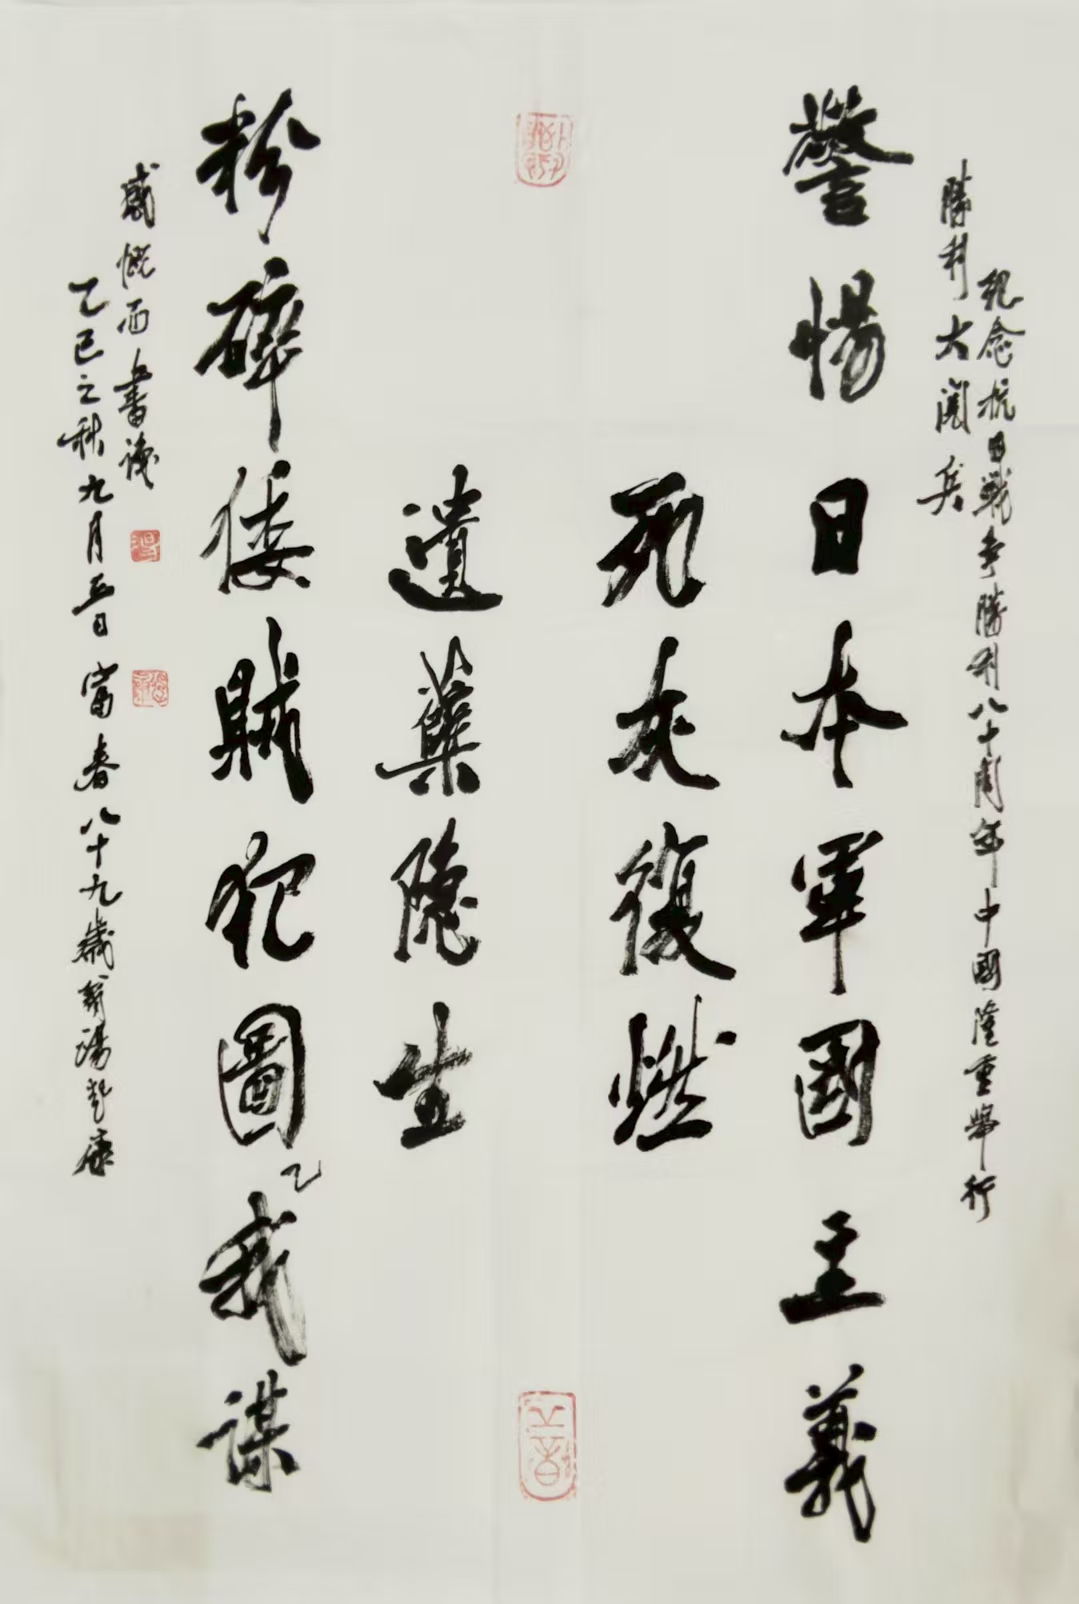 紀念抗日戰争勝利八十周年中國隆重舉行
勝利大閱兵
警惕日本軍國主義
死灰復燃
遺蘖隐生
粉碎倭賊犯圖我謀
感慨而書
乙巳之秋九月日富春八十九歲翁湯康